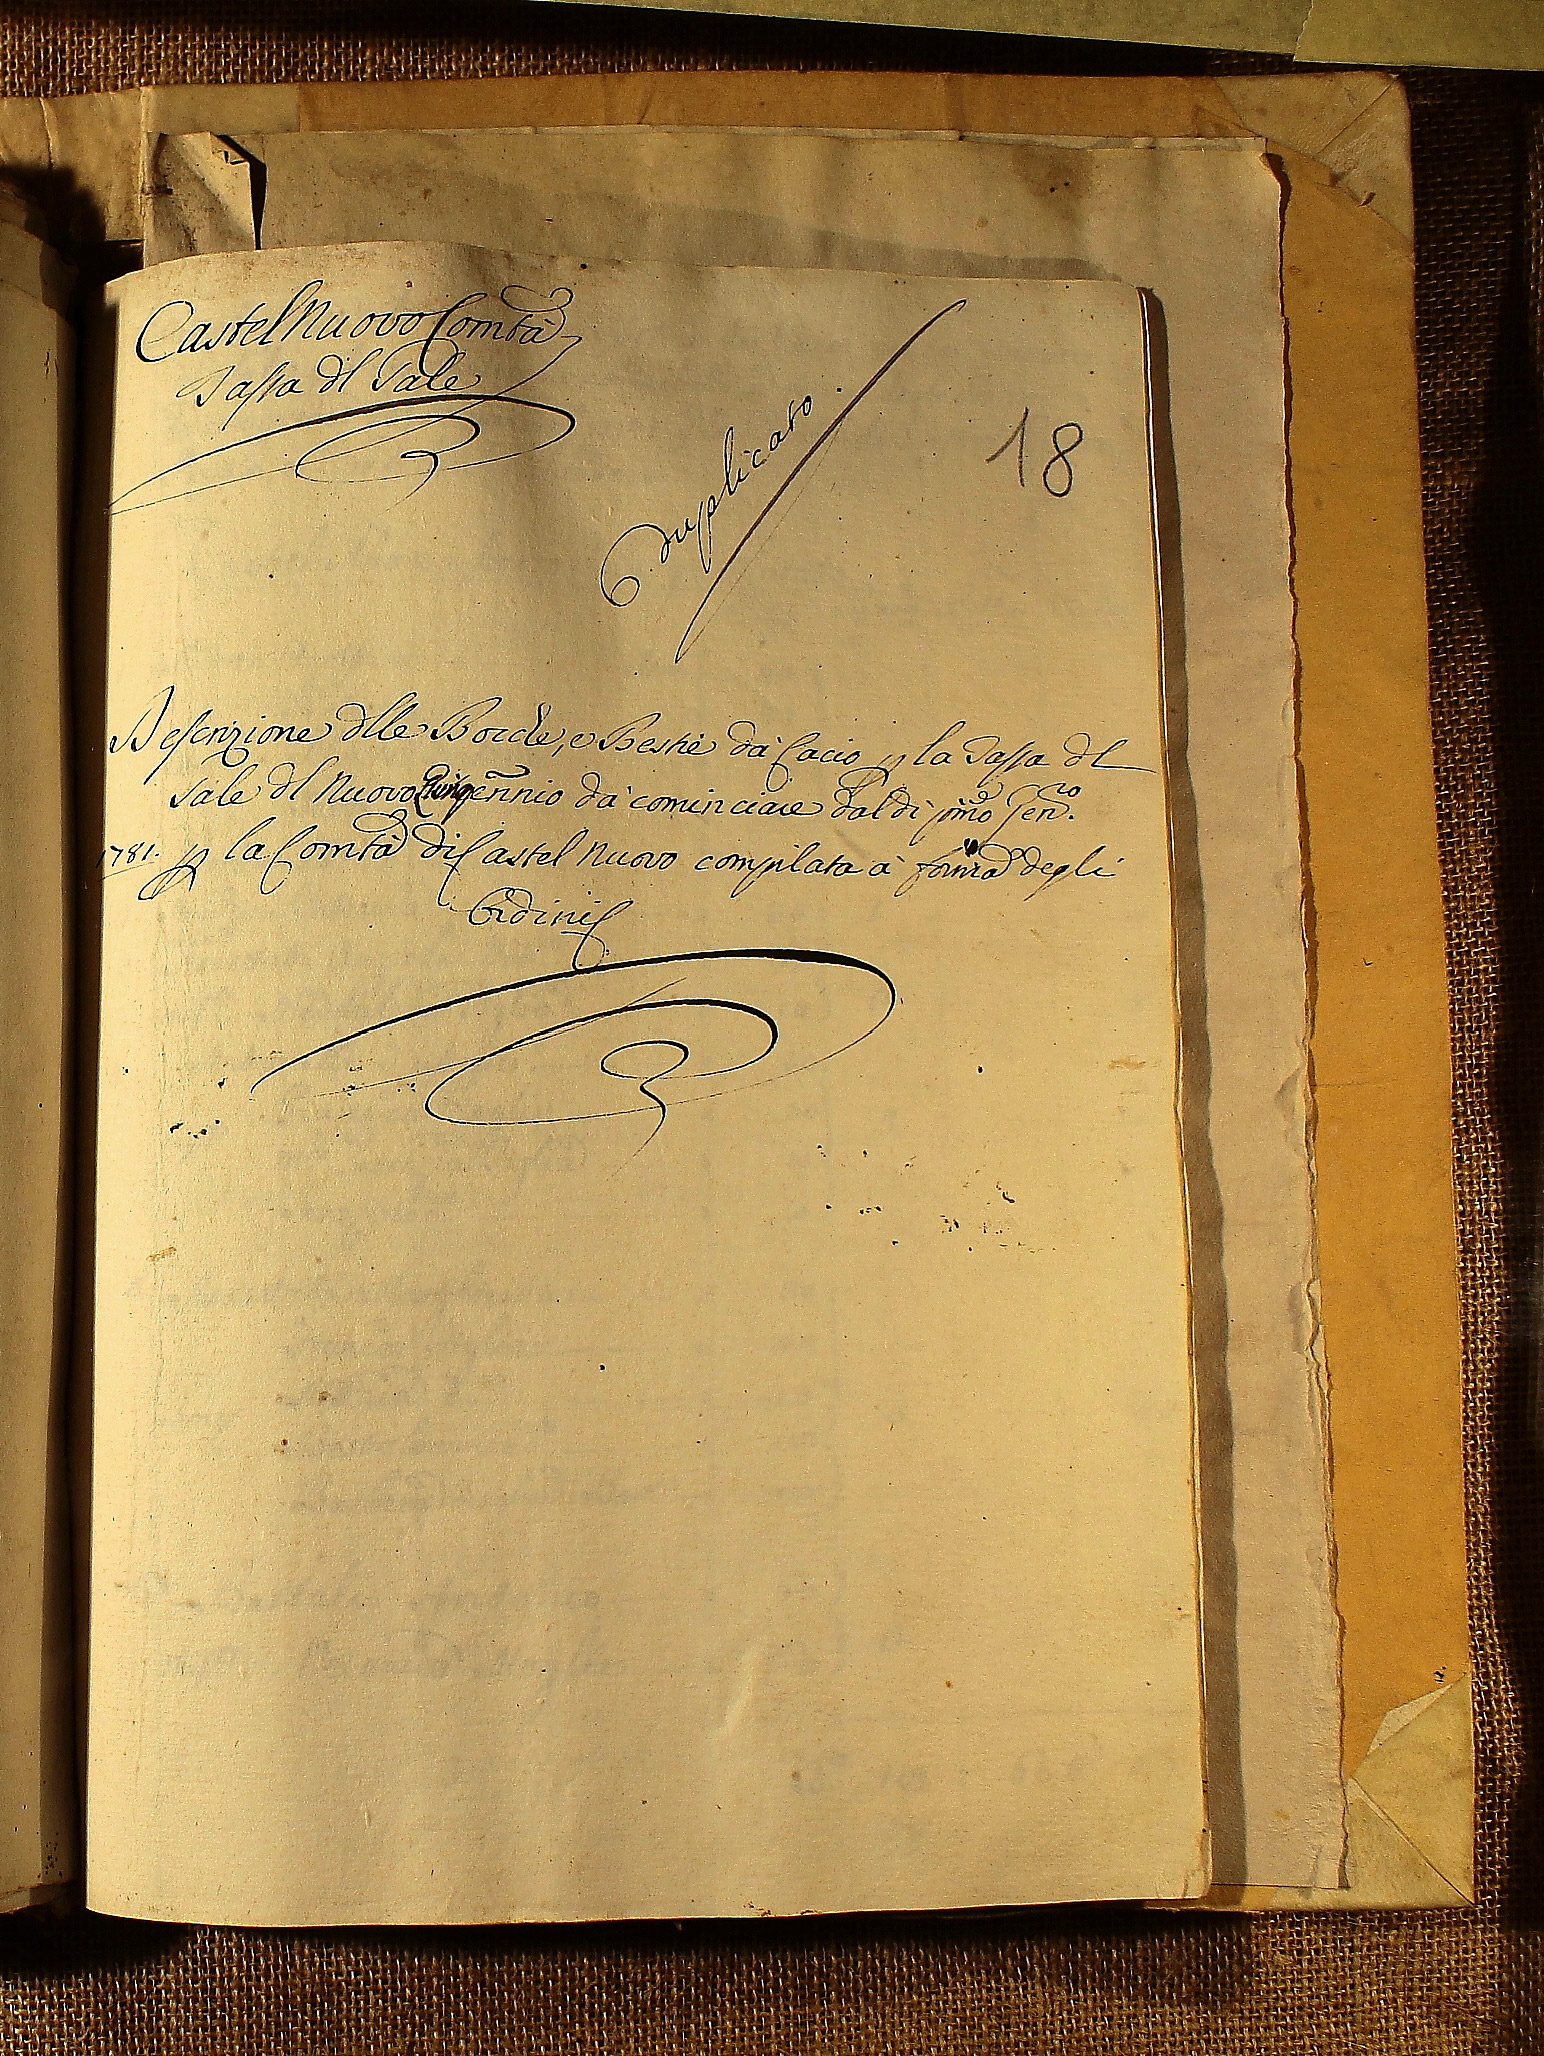 CastelNuovo Comtà
Tassa dl Sale
duplicato
18
Descrizione dlle Bocche, e Bestie dà Cacio p la Tassa dl
Sale dl Nuovo Quinqennio dà cominciare dal dì pmo Genro
1781. p la Comtà di Castel Nuovo compilata à forma degli
Ordini